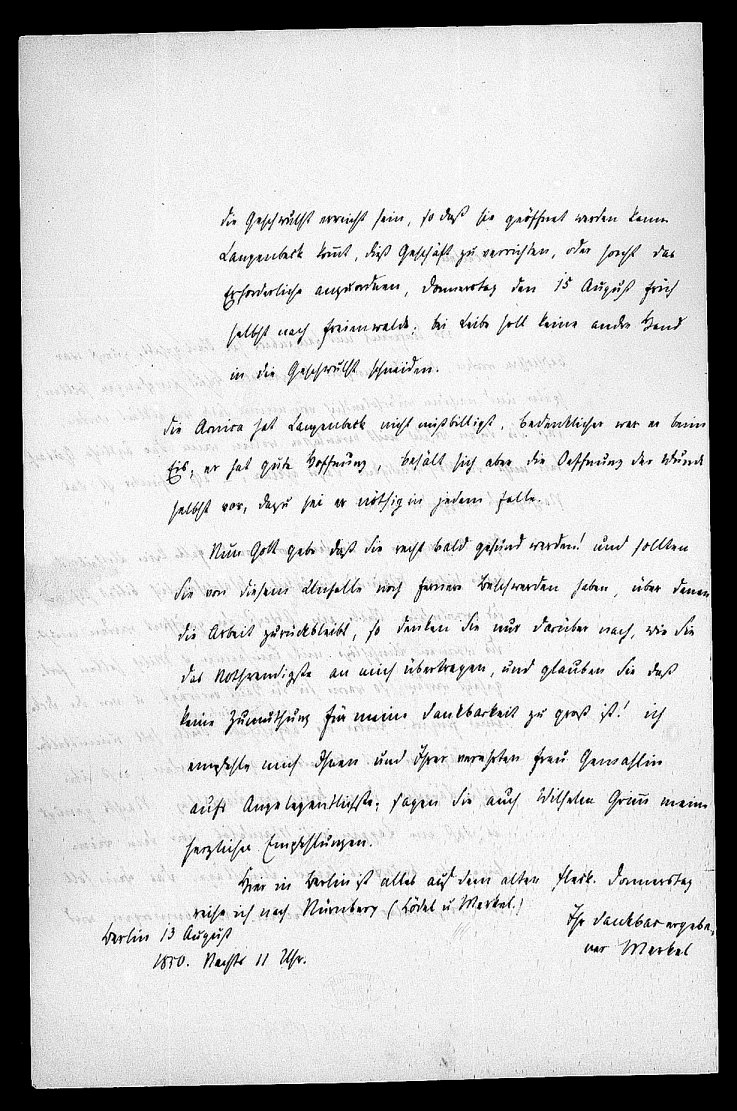 die Geschwulst erreicht sein, so daß sie geöffnet werden kann
Langenbeck kom̅t, dieß Geschäft zu verrichten, oder sonst das
Erforderliche anzuordnen, Donnerstag den 15 August früh
selbst nach Freienwalde; bei Leibe soll keine andre Hand
in die Geschwulst schneiden.
Die Arnica hat Langenbeck nicht mißbilligt, bedenklicher war er beim
Eis; er hat gute Hoffnung, behält sich aber die Oeffnung der Wunde
selbst vor, dazu sei er nöthig in jedem Falle.
Nun Gott gebe daß Sie recht bald gesund werden! und sollten
Sie von diesem Unfalle noch fernere Beschwerden haben, über denen
die Arbeit zurückbleibt, so denken Sie nur darüber nach, wie Sie
das Nothwendigste an mich übertragen, und glauben Sie daß
keine Zumuthung für meine Dankbarkeit zu groß ist! ich
empfehle mich Ihnen und Ihrer verehrten Frau Gemahlin
aufs Angelegentlichste; sagen Sie auch Wilhelm Grim̅ meine
herzlichen Empfehlungen.
Hier in Berlin ist alles auf dem alten Fleck. Donnerstag
reise ich nach Nürnberg (Lödel u Merkel.)
Ihr dankbar ergebe-
ner Merkel
Berlin 13 August
1850. Nachts 11 Uhr.